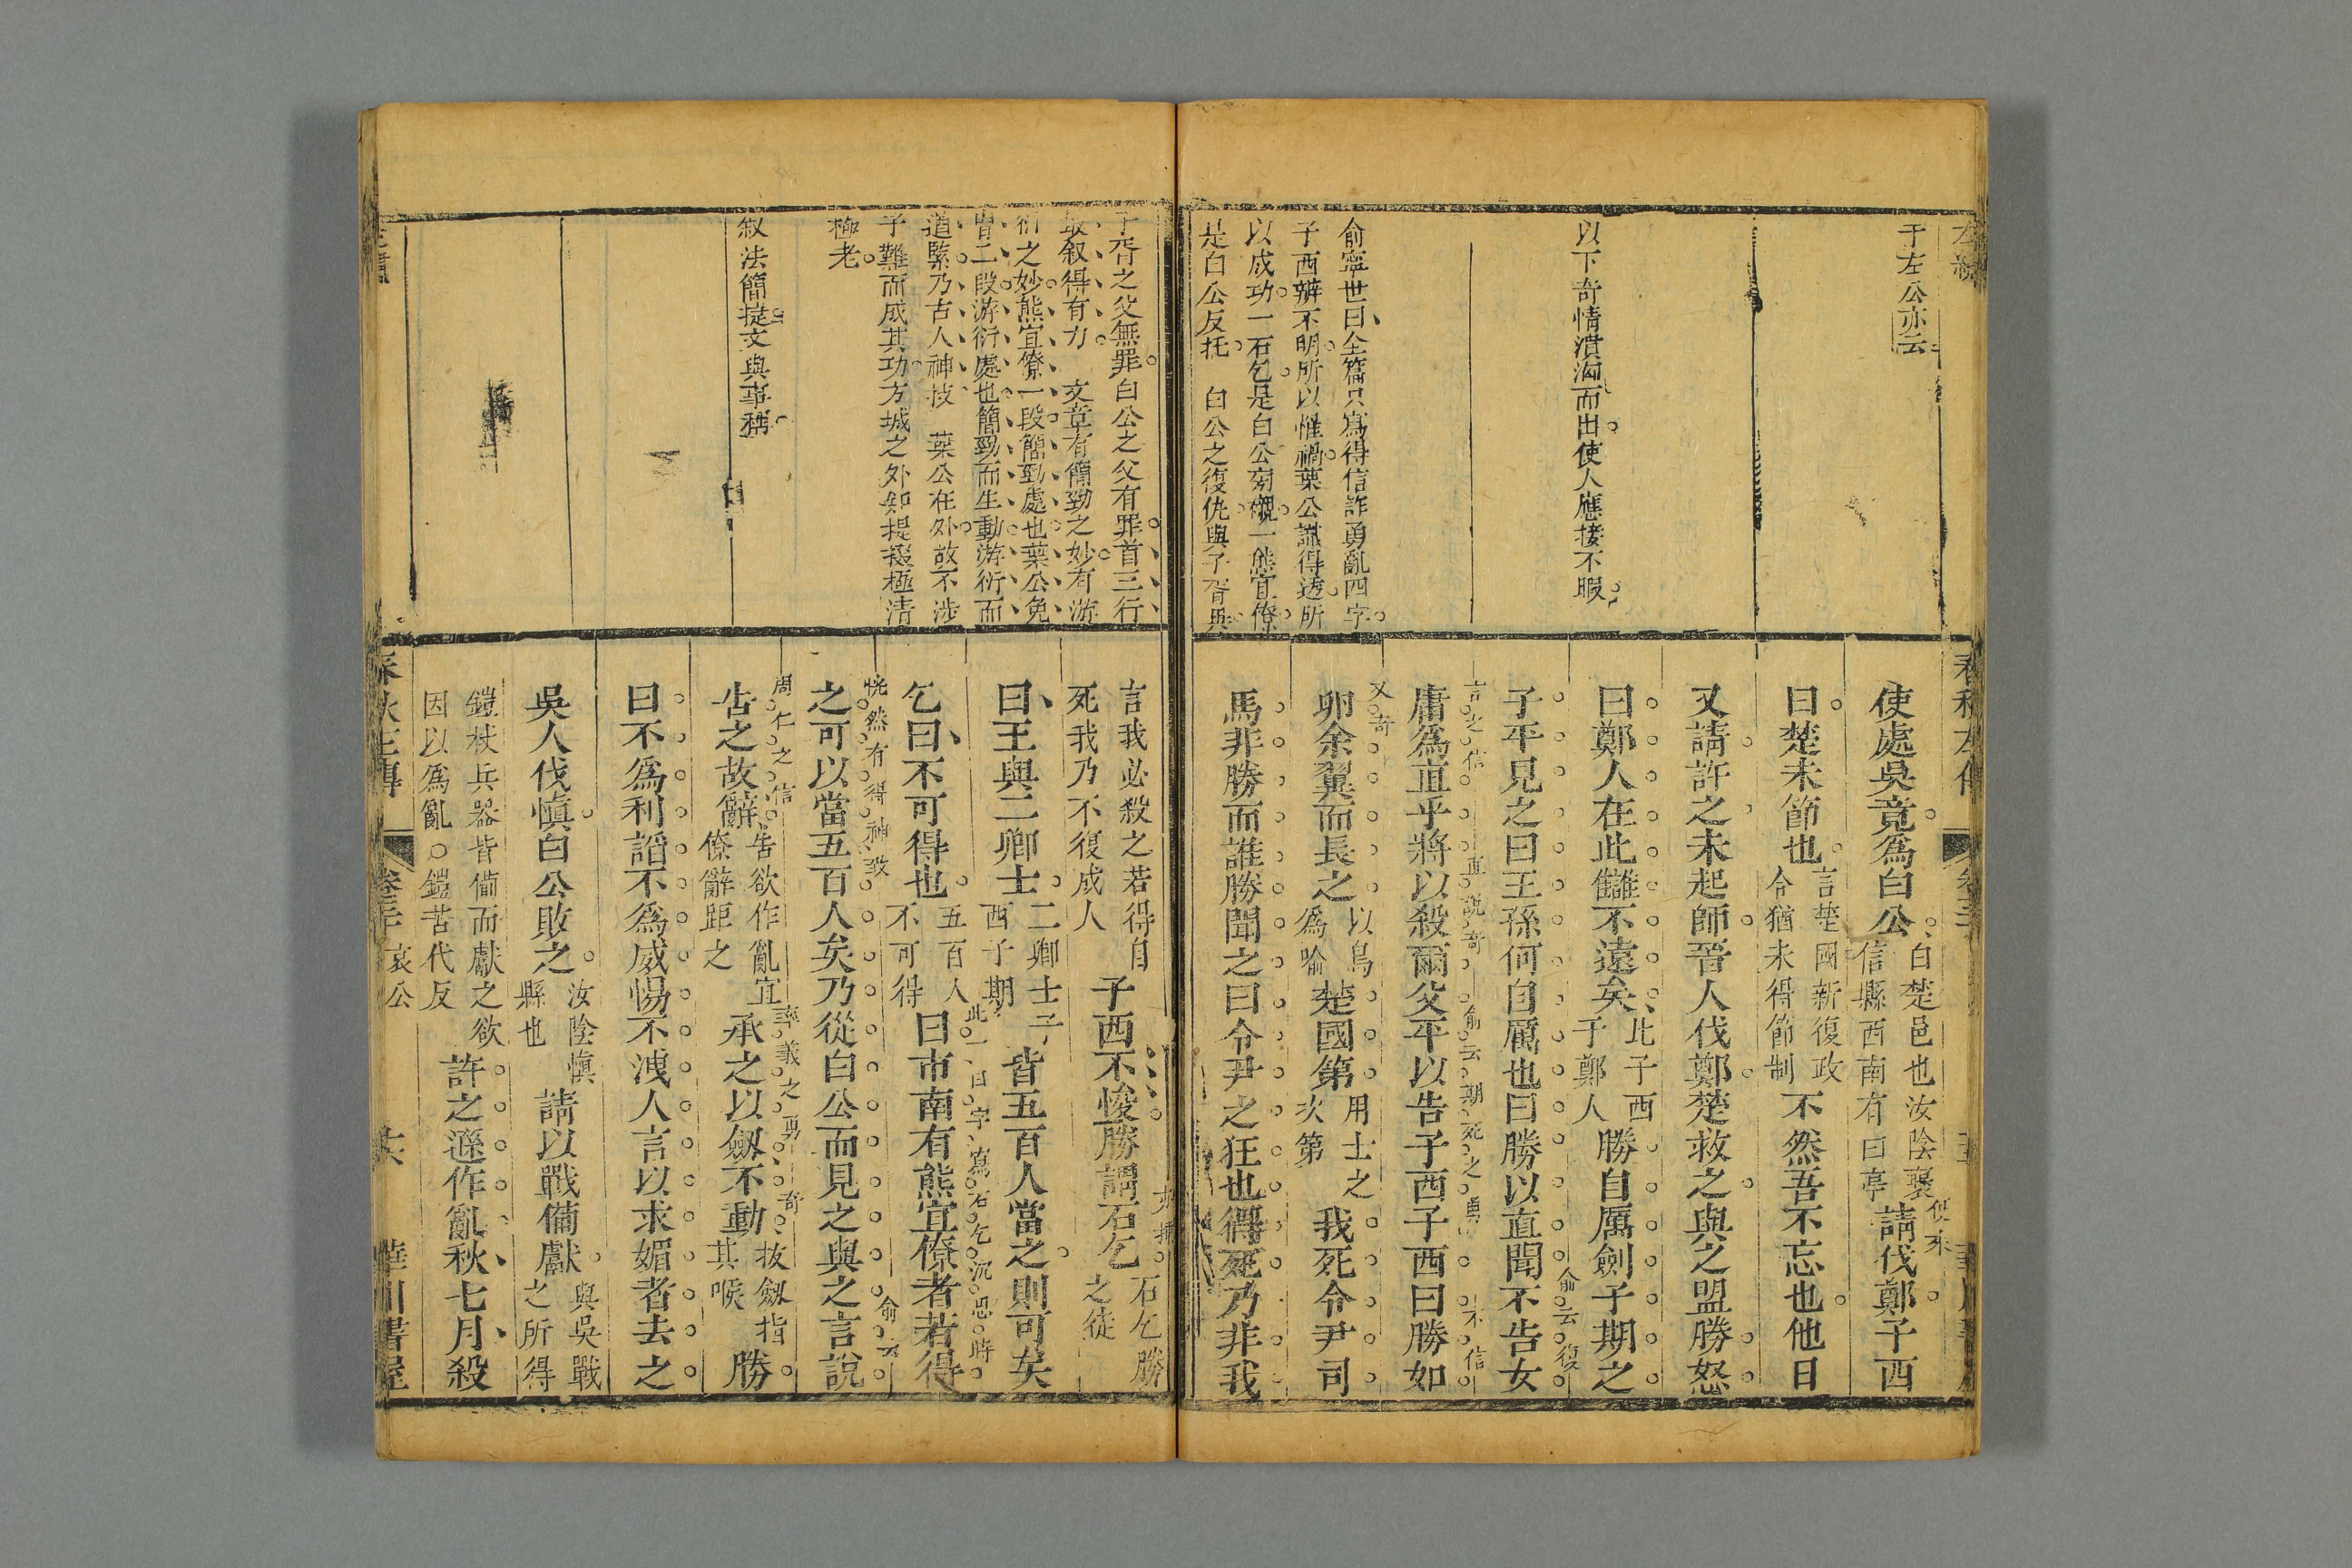 于左公亦云
以下奇情潰淘而出使人應接不暇
俞寧世曰全篇只寫得信詐勇亂四字
子西辨不明所以惟禍葉公識得透所
以成功一石乞是白公旁襯一熊宜僚
是白公反托　白公之復仇與子胥異
使處吳竟為白公
白楚邑也汝陰襃
信縣西南有白亭
請伐鄭子西
曰楚未節也
言楚國新復政
令猶未得節制
不然吾不忘也他日
又請許之未起師晉人伐鄭楚救之與之盟勝怒
曰鄭人在此讎不遠矣
此子西
子鄭人
勝自厲劍子期之
子平見之曰王孫何自厲也曰勝以直聞不告女
俞云復
言之信
直說奇
俞云期死之勇
不信
庸為直乎將以殺爾父平以告子西子西曰勝如
又奇
卵余翼而長之
以鳥
為喻
楚國第
用士之
次第
我死令尹司
馬非勝而誰勝聞之曰令尹之狂也得死乃非我
子胥之父無罪白公之父有罪首三行
最叙得有力　文章有簡勁之妙有游
衍之妙熊宜僚一段簡勁處也葉公免
冑二段游衍處也簡勁而生動游衍而
道緊乃古人神技　葉公在外故不涉
子難而成其功方城之外卻提掇極清
極老
叙法簡捷文與事稱
言我必殺之若得自
死我乃不復成人
子西不悛勝謂石乞
石乞勝
之徒
曰王與二卿士
二卿士子
西子期
皆五百人當之則可矣
此一曰字寫石乞沉思時
乞曰不可得也
五百人
不可得
曰市南有熊宜僚者若得
恍然有得神致
俞云
之可以當五百人矣乃從白公而見之與之言說
周仁之信
率義之勇
奇
告之故辭
告欲作亂宜
僚辭距之
承之以劔不動
拔劔指
其喉
勝
曰不為利諂不為威惕不洩人言以求媚者去之
吳人伐慎白公敗之
汝陰慎
縣也
請以戰備獻
與吳戰
之所得
鎧杖兵器皆備而獻之欲
因以為亂○鎧苦代反
許之遂作亂秋七月殺
春秋左傳　哀公　華川書屋